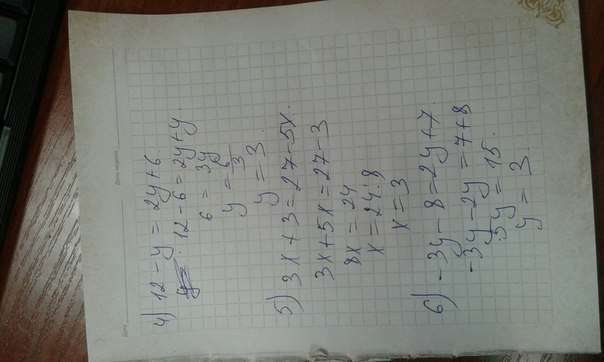 4) 12 - y = 2y + 6
12 - 6 = 2y + y.
6 = 3y
y = 6/3
y = 3.
5) 3x + 3 = 27 - 5x.
3x + 5x = 27 - 3
8x = 24
x = 24:8
x = 3
6) -3y - 8 = 2y + 7
-3y - 2y = 7 + 8
5y = 15.
y = 3.